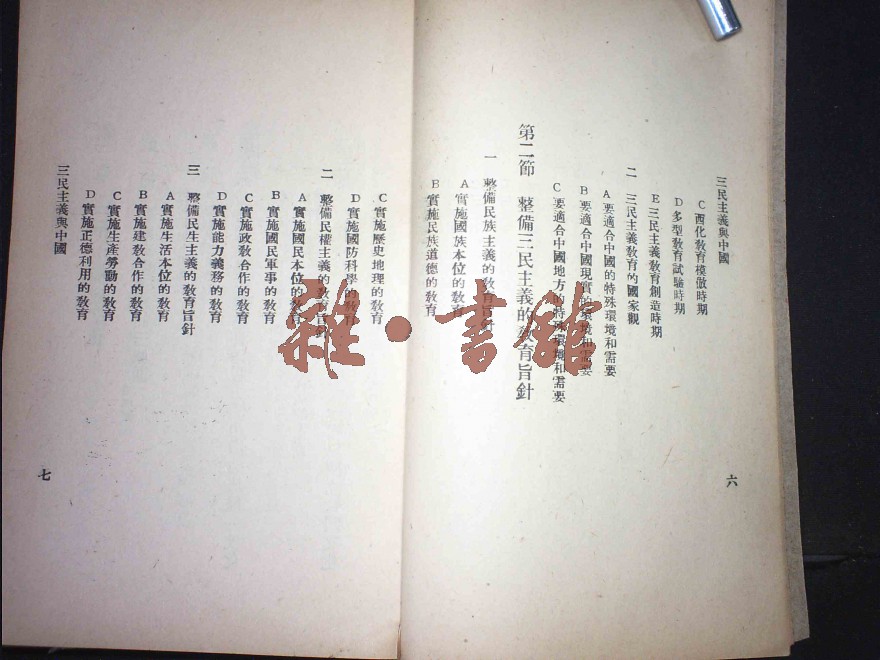 三民主義與中國
C 西化教育模倣時期
D 多型教育試驗時期
E 三民主義教育創造時期
二 三民主義教育的國家觀
A 要適合中國的特殊環境和需要
B 要適合中國現實的環境和需要
C 要適合中國地方的特殊環境和需要
第二節 整備三民主義的教育旨針
一 整備民族主義的教育旨針
A 實施國族本位的教育
B 實施民族道德的教育
六
C 實施歷史地理的教育
D 實施國防科學的教育
二 整備民權主義的教育旨針
A 實施國民本位的教育
B 實施國民軍事的教育
C 實施政教合作的教育
D 實施能力義務的教育
三 整備民生主義的教育旨針
A 實施生活本位的教育
B 實施建教合作的教育
C 實施生產勞動的教育
D 實施正德利用的教育
三民主義與中國
七
雜·書館